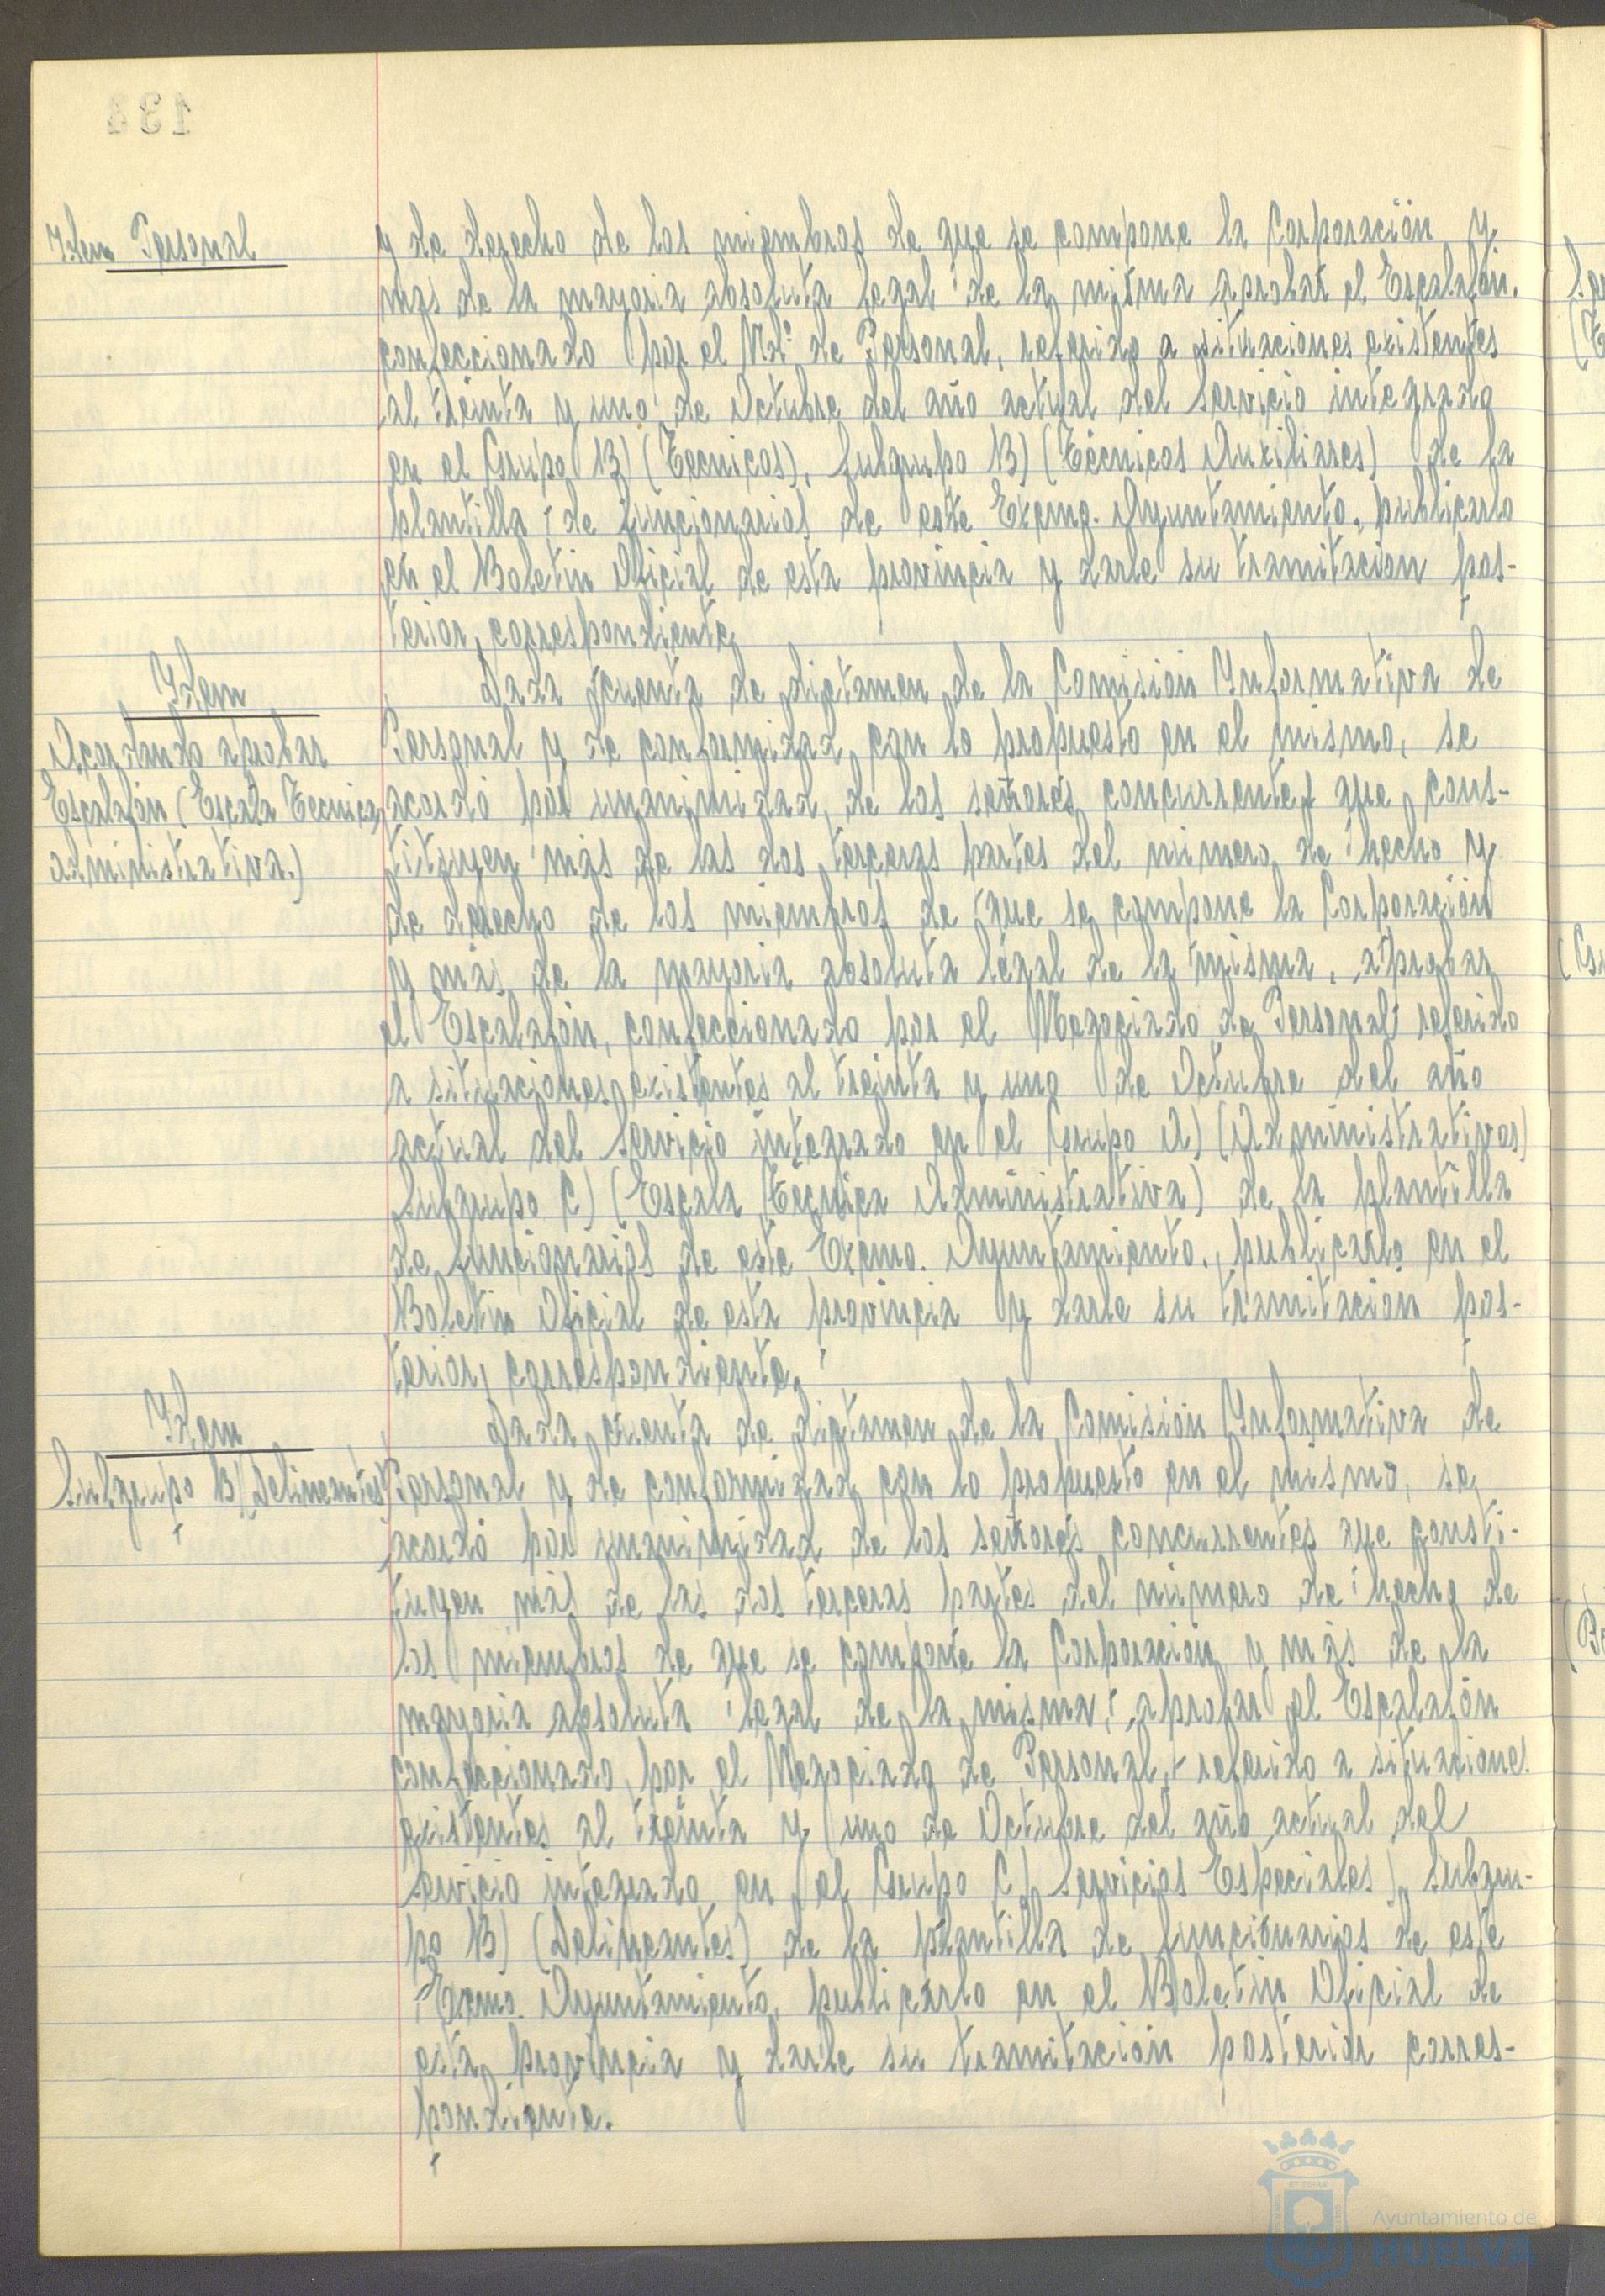 Idem Personal
y de derecho de los miembros de que se compone la Corporación y
más de la mayoria absoluta legal de la misma aprobar el Escalafón,
confeccionado por el Ndº de Personal, referido a situaciones existentes
al treinta y uno de Octubre del año actual del Servicio integrado
en el Grupo B) (Tecnicos), Subgrupo B) (Técnicos Auxiliares) de la
plantilla de funcionarios de este Excmo. Ayuntamiento, publicarlo
en el Boletin Oficial de esta provincia y darle su tramitacion pos-
terior, correspondiente,
Idem
Acordando aprobar
Escalafón (Escala Tecnica
administrativa.)
Dada cuenta de dictamen de la Comisión Informativa de
Personal y de conformidad con lo propuesto en el mismo, se
acordó por unanimidad, de los señores concurrentes que cons-
tituyen más de las dos terceras partes del número de hecho y
de derecho de los miembros de que se compone la Corporación
y más de la mayoria absoluta legal de la misma, aprobar
el Escalafón, confeccionado por el Negociado de Personal referido
a situaciones existentes al treinta y uno de Octubre del año
actual del Servicio integrado en el Grupo A) (Administrativos)
Subgrupo C) (Escala Técnica Administrativa) de la plantilla
de funcionarios de este Excmo. Ayuntamiento, publicarlo en el
Boletin Oficial de esta provincia y darle su tramitación pos-
terior, correspondiente,
Idem
Subgrupo B) (Delineantes)
Dada cuenta de dictamen de la Comisión Informativa de
Personal y de conformidad con lo propuesto en el mismo, se
acordó por unanimidad de los señores concurrentes que consti-
tuyen más de las dos terceras partes del número de hecho de
los miembros de que se compone la Corporación y más de la
mayoria absoluta legal de la misma, aprobar el Escalafón
confeccionado por el Negociado de Personal, referido a situaciones
existentes al treinta y uno de Octubre del año actual del
Servicio integrado en el Grupo C) Servicios Especiales), Subgru-
po B) (Delineantes) de la plantilla de funcionarios de este
Excmo. Ayuntamiento, publicarlo en el Boletin Oficial de
esta provincia y darle su tramitación posterior corres-
pondiente.
Ayuntamiento de
HUELVA